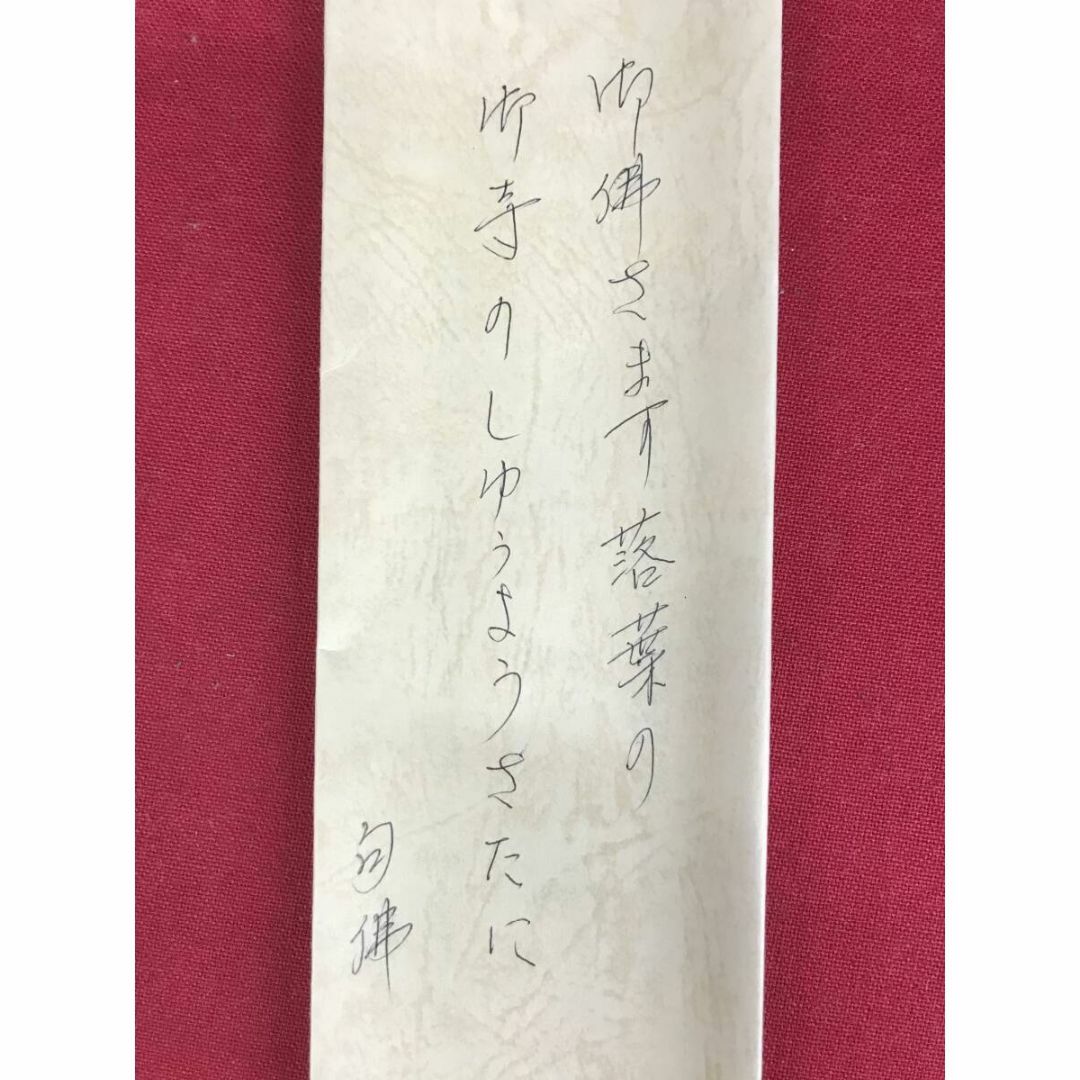 御佛さます落葉の
御寺のしゆうようさたに
句佛